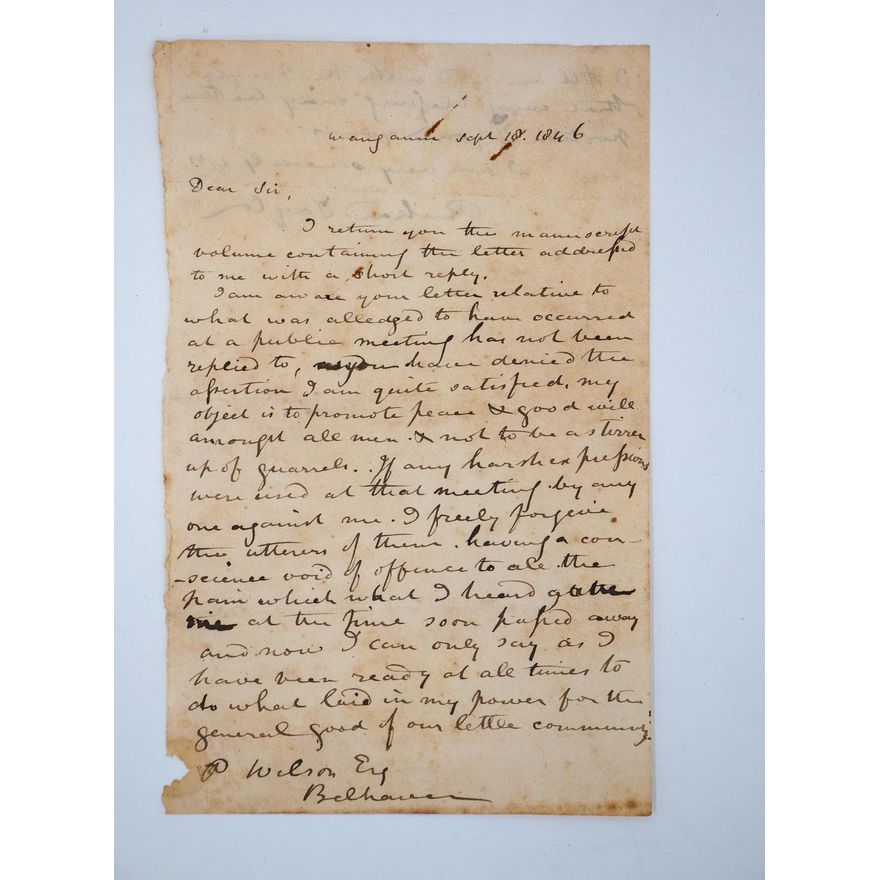 Wanganui Sept 18. 1846
Dear Sir,
I return you the manuscript
volume containing the letter addressed
to me with a short reply.
I am aware your letter relative to
what was alledged to have occurred
at a public meeting has not been
replied to, as you have denied the
assertion I am quite satisfied, my
object is to promote peace & good will
amongst all men. & not to be a stirrer
up of quarrels. If any harsh expressions
were used at that meeting by any
one against me. I freely forgive
the utterers of them. having a con-
-science void of offence to all. the
pain which what I heard gave
me at the time soon passed away
and now I can only say as I
have been ready at all times to
do what laid in my power for the
general good of our little community
P Wilson Esq
Belhaven
Richd Taylor